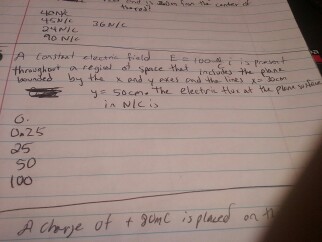 from the center of
the rod
40 N/C
45 N/C 36 N/C
24 N/C
90 N/C
A constant electric field E = 100 i is present
throughout a region of space that includes the plane
bounded by the x and y axes and the lines x = 30cm
y = 50cm. The electric flux at the plane surface
in N/C is
0.
0.25
25
50
100
A charge of + 80mC is placed on th